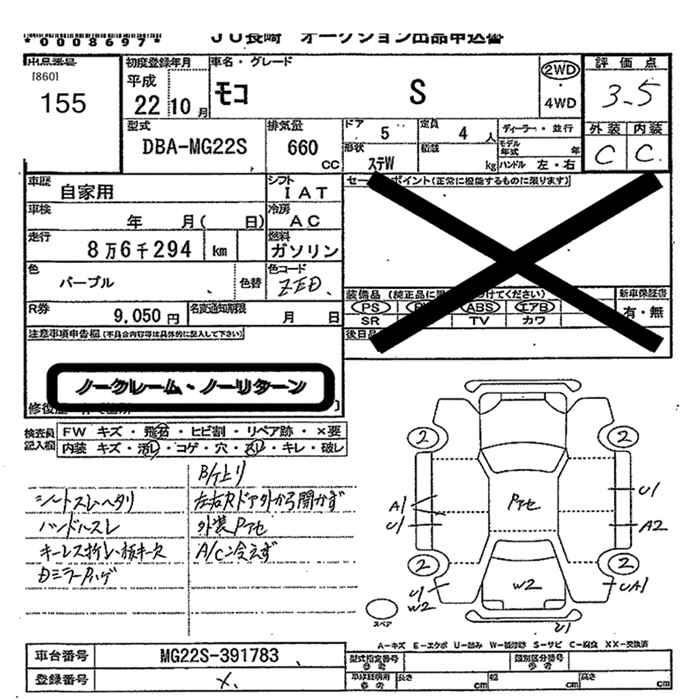 *0008697* JU長崎 オークション出品申込書
出品番号
[860]
155
初度登録年月
平成
22 10 月
車名・グレード
モコ S
2WD
・
4WD
評価点
3.5
外装 内装
C C
型式
DBA-MG22S
排気量
660
CC
ドア 5
定員 4 人
ディーラー・並行
モデル年式 年
形状 ステW
積載 kg
ハンドル 左・右
車歴
自家用
シフト
IAT
車検
年 月( 日)
冷房
AC
走行
8万6千294 km
燃料
ガソリン
色
パープル
色替
色コード
ZED
R券
9,050 円
名変通知期限
月 日
セールスポイント(正常に機能するものに限ります)
装備品 (純正品に
けてください)
PS ABS エアB
SR TV カワ
新車保証書
有・無
後日品
注意事項申告欄(不具合内容等は具体的に記入して下さい)
ノークレーム・ノーリターン
検査員記入欄
FW キズ・飛石・ヒビ割・リペア跡・×要
内装 キズ・汚レ・コゲ・穴・スレ・キレ・破レ
B/T上り
シートスレヘタリ
左右Rドア外から開かず
ハンドルスレ
外装Pアセ
キーレス折レ・板キー欠
A/C冷えず
Dミラーハゲ
2 2
A1
U1
Pアセ
U1
A2
2 2
U1
W2
W2
UA1
U1
スペア
A-キズ E-エクボ U-凹み W-補修跡 S-サビ C-腐食 XX-交換済
車台番号
MG22S-391783
登録番号
×
型式指定番号
類別区分番号
長さ cm
幅 cm
高さ cm